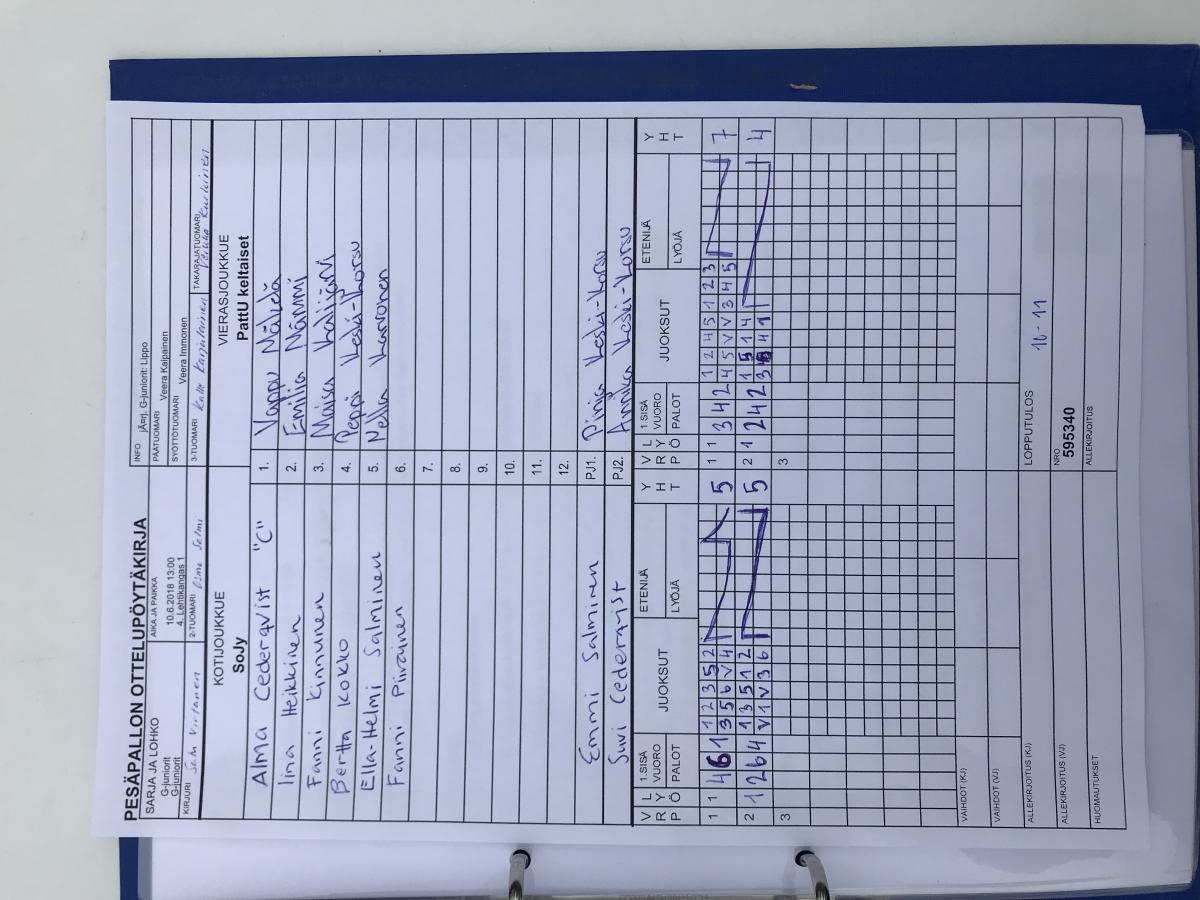 PESÄPALLON OTTELUPÖYTÄKIRJA
SARJA JA LOHKO
G-juniorit
G-juniorit
AIKA JA PAIKKA
10.6.2018 13:00
4. Lehtikangas 1
INFO jÃ¤rj. G-juniorit: Lippo
PÄÄTUOMARI Veera Kaipainen
SYÖTTÖTUOMARI Veera Immonen
KIRJURI Virtanen
2-TUOMARI Salmi
3-TUOMARI Kalle Karjalainen
TAKARAJATUOMARI Kurkinen
KOTIJOUKKUE
SoJy
VIERASJOUKKUE
PattU keltaiset
Alma Cederqvist "C" 1. Vappu Mäkelä
Iina Heikkinen 2. Emilia Nämmi
Fanni Kinnunen 3. Maisa Kalijärvi
Bertta Kokko 4. Peppi Keski-Korsu
Ella-Helmi Salminen 5. Nella Karvonen
Fanni Piirainen 6.
7.
8.
9.
10.
11.
12.
Emmi Salminen PJ1. Pinja Keski-Korsu
Suvi Cederqvist PJ2. Annika Keski-Korsu
V R P L Y Ö 1.SISÄ VUORO PALOT JUOKSUT ETENIJÄ LYÖJÄ Y H T V R P L Y Ö 1.SISÄ VUORO PALOT JUOKSUT ETENIJÄ LYÖJÄ Y H T
1 1 4 6 1 1 2 3 5 2 5 1 1 3 4 2 1 2 4 5 1 2 3 7
3 5 6 V 4 4 5 V V 3 4 5
2 1 2 6 4 1 3 5 1 2 5 2 1 2 4 2 1 5 1 4 4
V 1 V 3 6 4 1
3 3
VAIHDOT (KJ)
VAIHDOT (VJ)
ALLEKIRJOITUS (KJ)
LOPPUTULOS 10 - 11
ALLEKIRJOITUS (VJ)
NRO
595340
HUOMAUTUKSET
ALLEKIRJOITUS